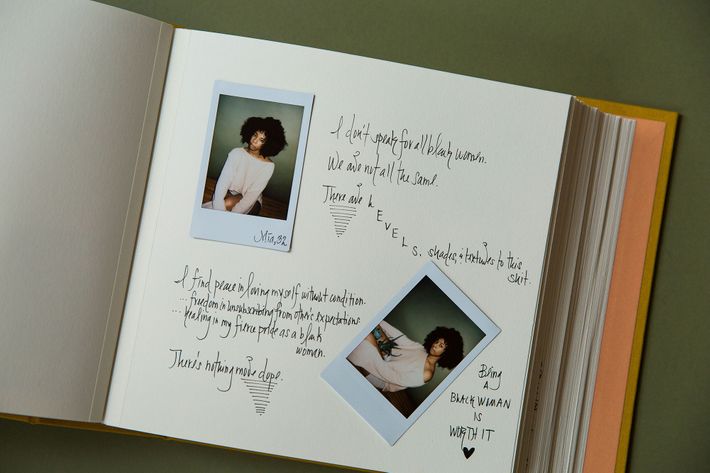 I don't speak for all black women.
We are not all the same.
There are LEVELS, shades, & textures to this
shit.
Mia, 32
I find peace in loving myself without condition.
... freedom in unsubscribing from other's expectations
... healing in my fierce pride as a black
women.
There's nothing more dope.
Being
A
BLACK WOMAN
IS
WORTH IT